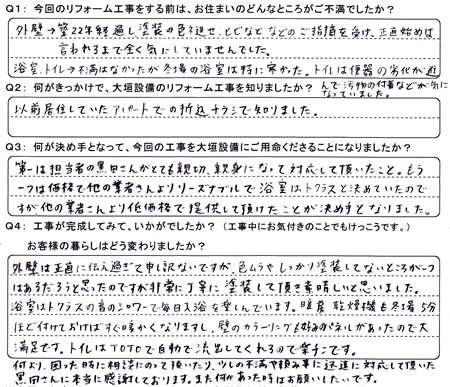 Q1: 今回のリフォーム工事をする前は、お住まいのどんなところがご不満でしたか?
外壁→築22年経過し塗装の色あせ、とじなどなどのご指摘を受け、正直始めは
言われるまで全く気にしていませんでした。
浴室、トイレ→不満はなかったが冬場の浴室は特に寒かった。トイルは便器の劣化が進
んで汚物の付着などが気に
なっていました。
Q2: 何がきっかけで、大垣設備のリフォーム工事を知りましたか?
以前居住していたアパートでの折込チラシで知りました。
Q3: 何が決め手となって、今回の工事を大垣設備にご用命くださることになりましたか?
第一は担当者の黒田さんがとても親切、親身になって対応して頂いたこと。もう
一つは価格で他の業者さんよりリーズナブルで浴室はトクラスと決めていたので
すが、他の業者さんより低価格で提供して頂けたことが決め手となりました。
Q4: 工事が完成してみて、いかがでしたか? (工事中にお気付きのことでもけっこうです。)
お客様の暮らしはどう変わりましたか?
外壁は正直に伝え過ぎて申し訳ないですが、色ムラやしっかり塗装してないところが一つ
はあるだろうと思ったのですが非常に丁寧に塗装して頂き素晴しいと思いました。
浴室はトクラスの音のシャワーで毎日入浴を楽しんでいます。暖房乾燥機も冬場5分
ほど付けておけばすぐ暖かくなりますし、壁のカラーリングも好みのパネルがあったので大
満足です。トイルはTOTOで自動で流出してくれるので楽チンです。
何より、困った時に相談にのって頂いたり、少しの不満や頼み事に迅速に対応して頂いた
黒田さんに本当に感謝しております。また何かあった時はお願いしたいです。